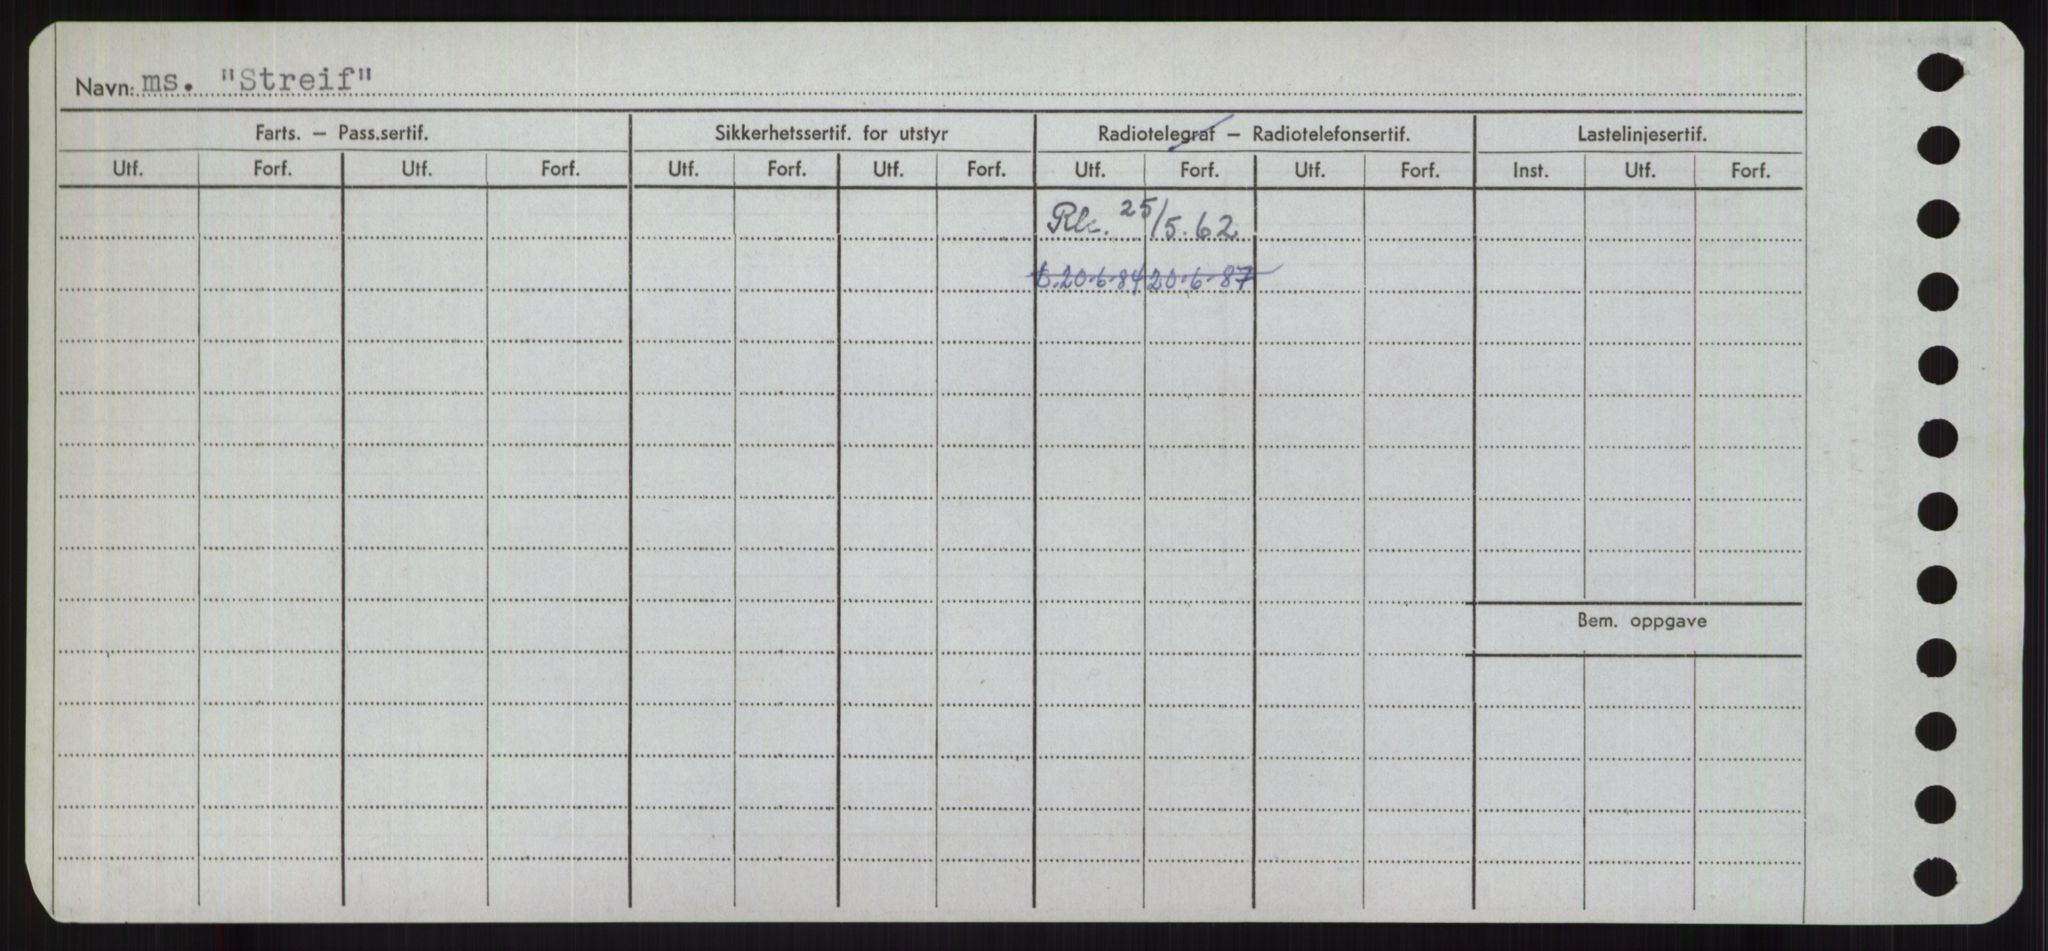 Navn: ms. "Streif"
Farts. – Pass.sertif. Sikkerhetssertif. for utstyr Radiotelegraf – Radiotelefonsertif. Lastelinjesertif.
Utf. Forf. Utf. Forf. Utf. Forf. Utf. Forf. Utf. Forf. Utf. Forf. Inst. Utf. Forf.
25/5.62
20.6.84 20.6.87
Bem. oppgave